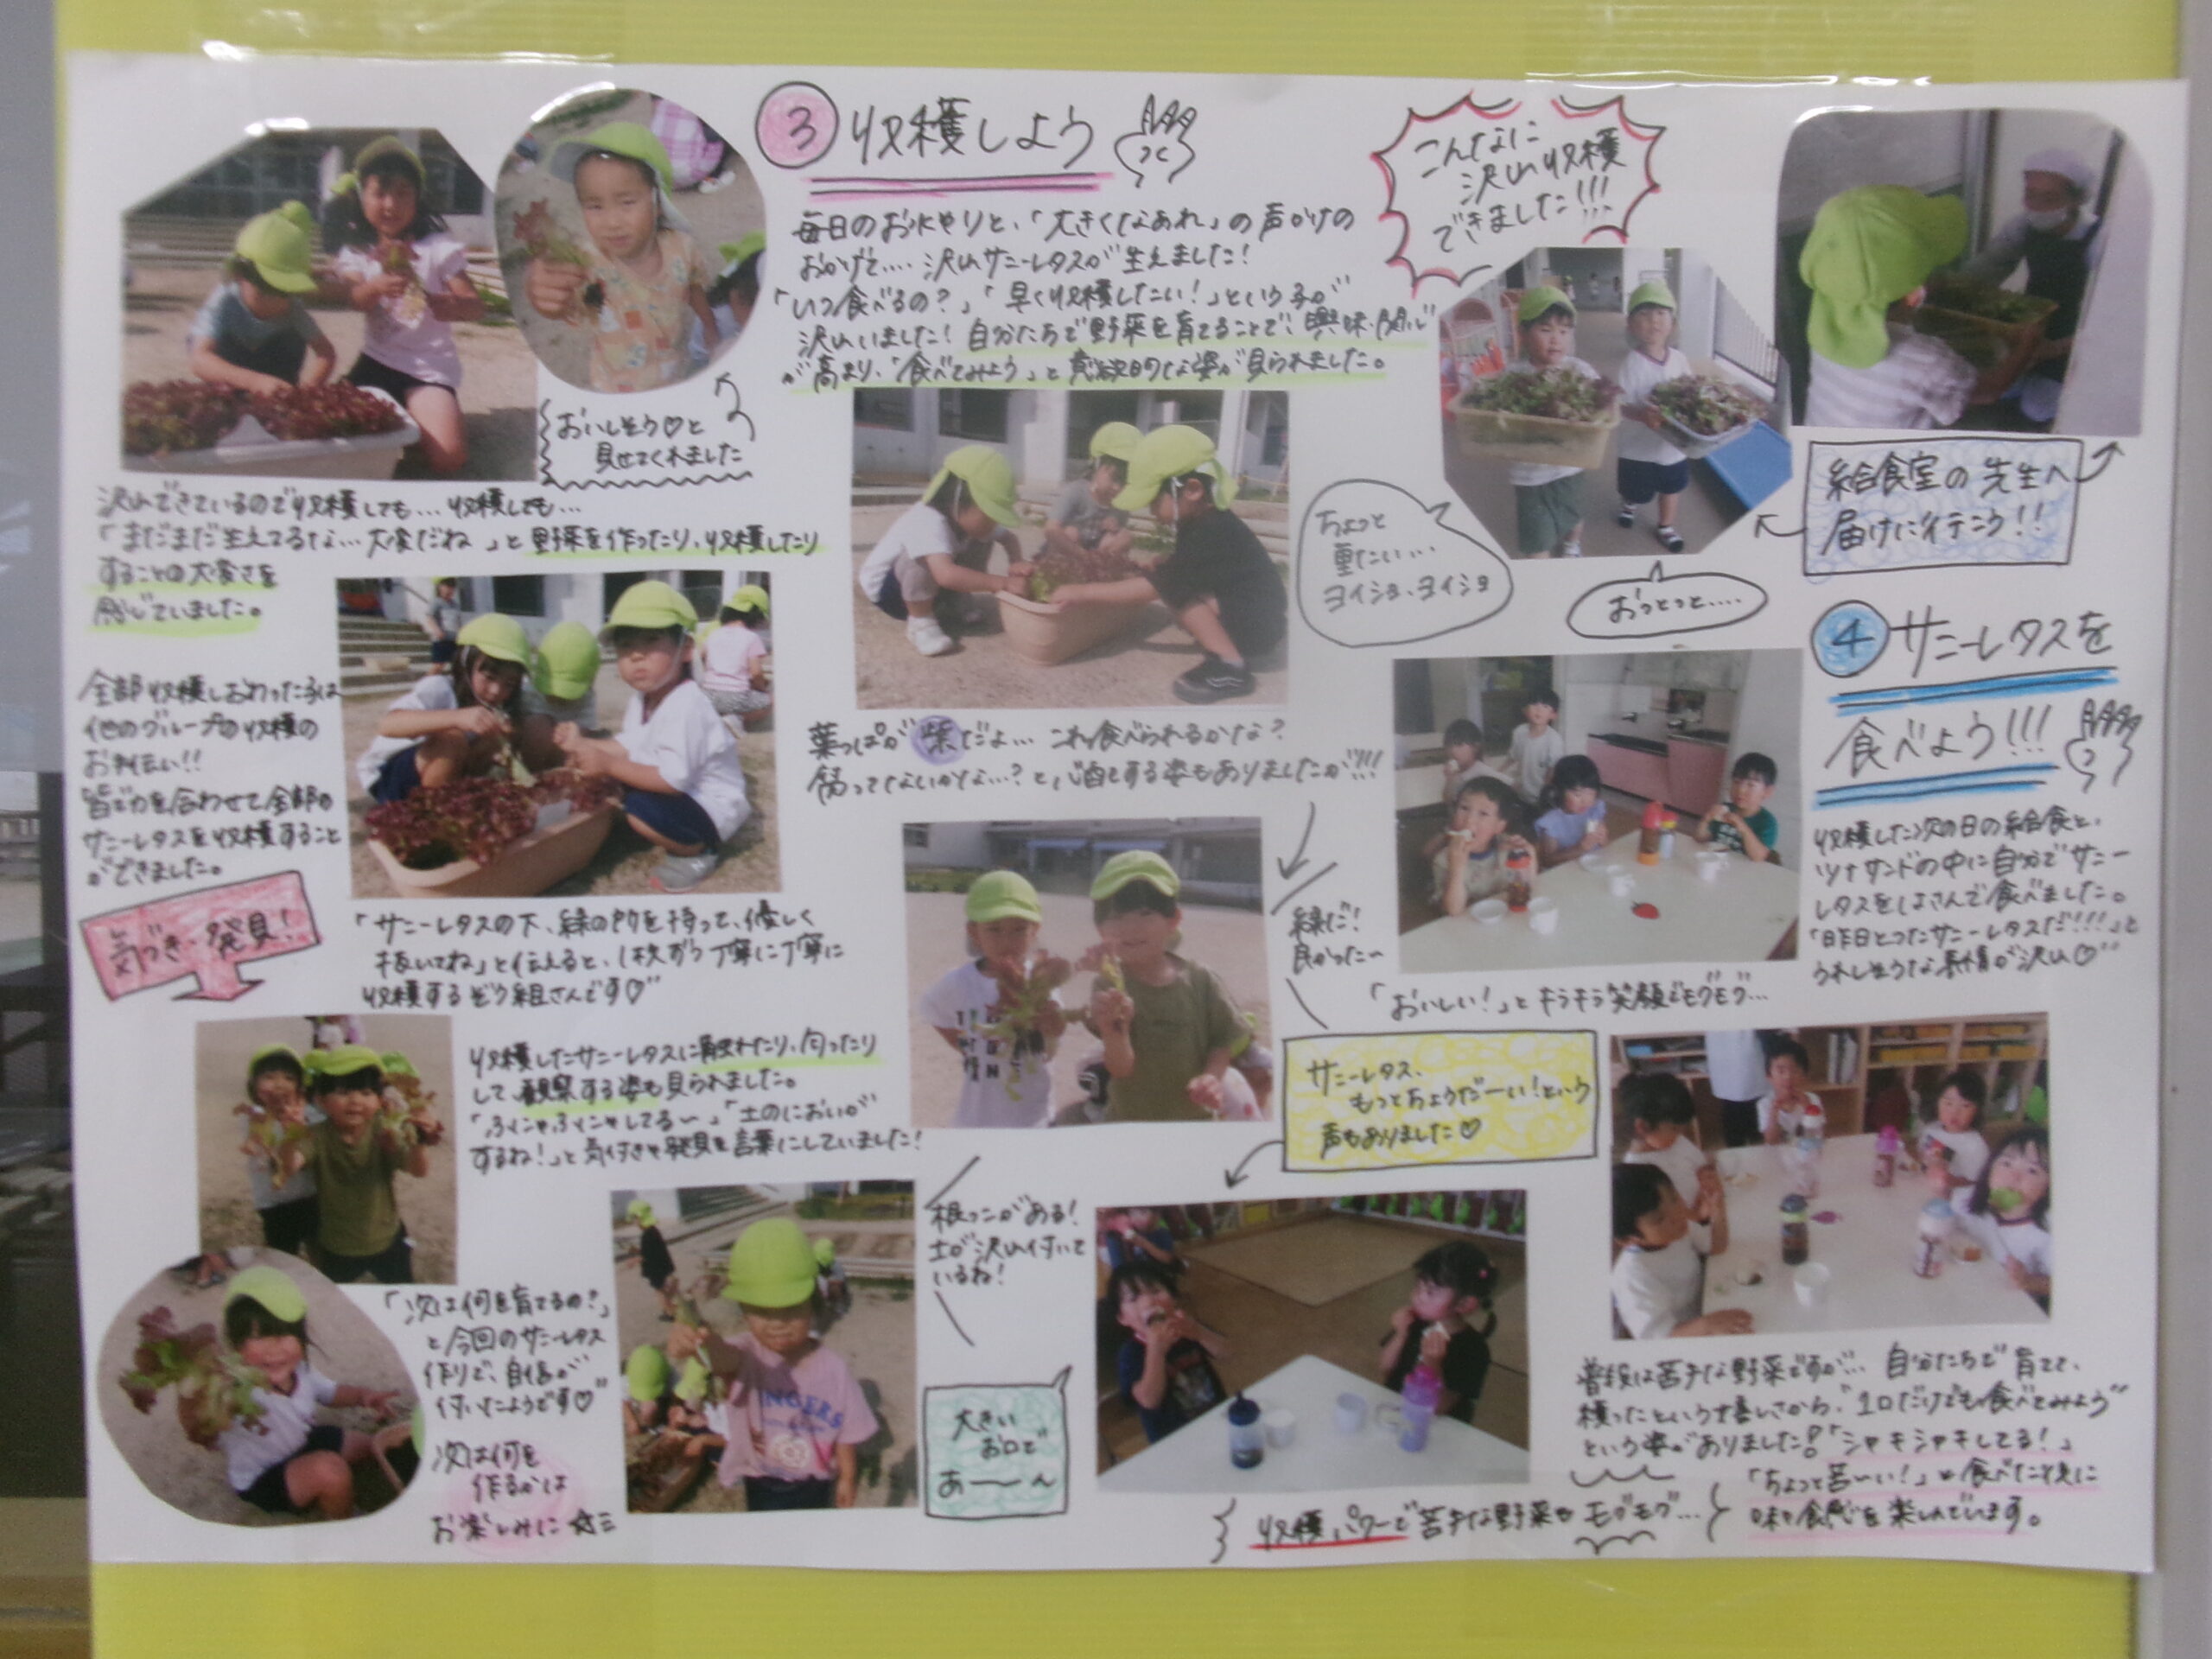 ③ 収穫しよう
毎日のお水やりと、「大きくなあれ」の声かけの
おかげで.... 沢山サニーレタスが生えました！
「いつ食べるの？」「早く収穫したい！」という子が
沢山いました！自分たちで野菜を育てることで、興味・関心
が高まり、「食べてみよう」と意欲的な姿が見られました。
おいしそう♡と
見せてくれました
沢山できているので収穫しても... 収穫しても...
「まだまだ生えてるな... 大変だね」と野菜を作ったり、収穫したり
することの大変さを
感じていました。
全部収穫しおわった子は
他のグループの収穫の
お手伝い!!
皆で力を合わせて全部の
サニーレタスを収穫すること
ができました。
気づき・発見！
「サニーレタスの下、緑の所を持って、優しく
抜いてね」と伝えると、1株ずつ丁寧に丁寧に
収穫するぞう組さんです♡
収穫したサニーレタスに触れたり、匂ったり
して、観察する姿も見られました。
「ふにゃふにゃしてる〜」「土のにおいが
するね！」と気付きや発見を言葉にしていました！
「次は何を育てるの？」
と今回のサニーレタス
作りで、自信が
付いたようです♡
次は何を
作るかは
お楽しみに☆ミ
葉っぱが紫だよ... これ食べられるかな？
腐ってないかな...？と心配する姿もありましたが!!!
緑だ！
良かった〜
根っこがある！
土が沢山付いて
いるね！
こんなに
沢山収穫
できました!!!
ちょっと
重たい...
ヨイショ、ヨイショ
おっとっと....
給食室の先生へ
届けに行こう!!
④ サニーレタスを
食べよう!!!
収穫した次の日の給食で、
ツナサンドの中に自分でサニー
レタスをはさんで食べました。
「昨日とったサニーレタスだ!!!」と
うれしそうな表情が沢山♡
「おいしい！」とキラキラ笑顔でモグモグ...
サニーレタス、
もっとちょうだーい！という
声もありました♡
大きい
お口で
あ――ん
普段は苦手な野菜ですが... 自分たちで育て、
穫ったという嬉しさから、“1口だけでも食べてみよう”
という姿がありました！「シャキシャキしてる！」
「ちょっと苦〜い！」と食べた時に
味や食感を楽しんでいます。
収穫パワーで苦手な野菜もモグモグ...